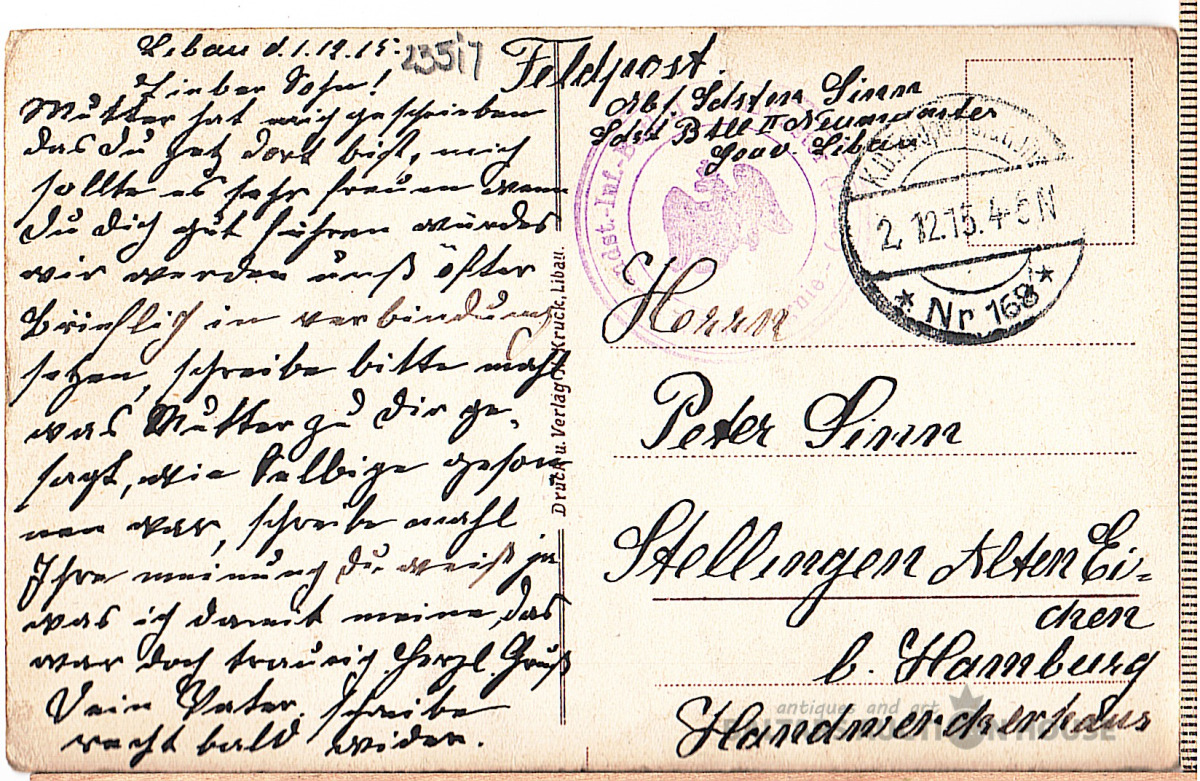 Libau d. 1.12.15.
23517
Lieber Sohn!
Mutter hat mich geschrieben
das du jetz dort bist, mich
sollte es sehr freuen wenn
du dich gut führen würdes
wir werden unß öfter
brieflich in verbindung
setzen, schreibe bitte mahl
was Mutter zu dir ge-
sagt, wie selbige geson
nen war, schreibe mahl
Ihre meinung du weist ja
was ich damit meine, das
war doch traurig. Herzl. Gruß
Dein Vater, schreibe
recht bald wider.
Druck u. Verlag Kruck, Libau.
Feldpost.
Abs. Ldstm Sinn
Ldst Btll II Neumünster
Gouv. Libau
Ldst.-Inf.-B
2.12.15.4-5N
* Nr. 168 *
Herrn
Peter Sinn
Stellingen Alten Ei-
chen
b. Hamburg
Handwerckerhaus
antiques and art
HOUSE